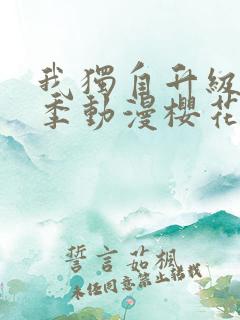 我獨自升級
季動漫櫻花
誓言茹楓
未经同意禁止转载